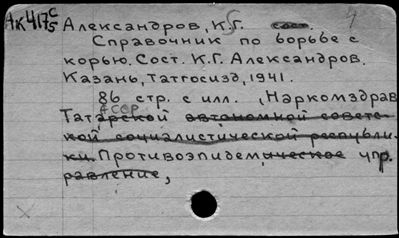 Ак417 с/5
Александров, К.Г. сост.
Справочник по борьбе с
корью. Сост. К.Г. Александров.
Казань, Татгосизд, 1941.
86 стр. с илл. , (Наркомздрав
АССР
Татарской автономной советс-
кой социалистической республи-
ки. Противоэпидемическое упр.
равление,